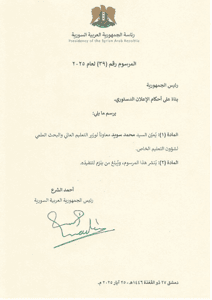 رئاسة الجمهورية العربية السورية
Presidency of the Syrian Arab Republic
المرسوم رقم (٣٩) لعام ٢٠٢٥
رئيس الجمهورية
بناءً على أحكام الإعلان الدستوري.
يرسم ما يلي:
المادة (١): يُعيّن السيد محمد سويد معاوناً لوزير التعليم العالي والبحث العلمي
لشؤون التعليم الخاص.
المادة (٢): يُنشر هذا المرسوم، ويُبلغ من يلزم لتنفيذه.
أحمد الشرع
رئيس الجمهورية العربية السورية
دمشق ٢٧ ذو القعدة ١٤٤٦هـ - ٢٥ أيار ٢٠٢٥ م.